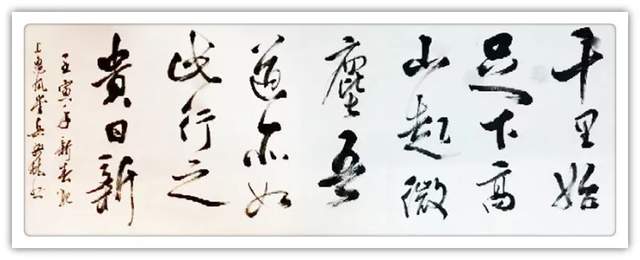 千里始
足下高
山起微
塵吾
道亦如
此行之
貴日新
壬寅年新春